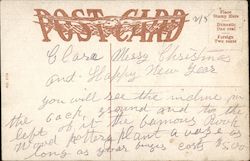 POST CARD
Place
Stamp Here
Domestic
One cent
Foreign
Two cents
Clara Merry Christmas
and Happy New Year
you will see the incline in
the back ground and to the
left of it the famous Rook
wood pottery plant a vase as
long as your finger costs $5.00